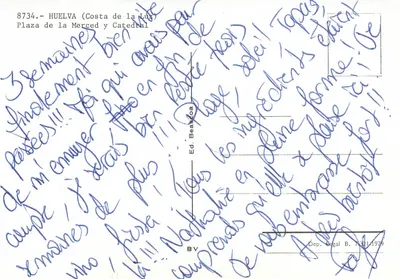 8734.- HUELVA (Costa de la Luz)
Plaza de la Merced y Catedral
3 semaines
finalement bien vite
passées!!! Moi qui avais peur
de m'ennuyer! en fin de
compte, je serais bien restée trois
semaines de plus! Plage, soleil, tapas,
vino, fiesta! Tous les ingrédients étaient
là!!! Nathalie est en pleine forme! Je
comprends qu'elle se plaise ici! Je
vous embrasse fort!!
A très bientôt
Ed. Beascoa
BV
Dep. Legal B.